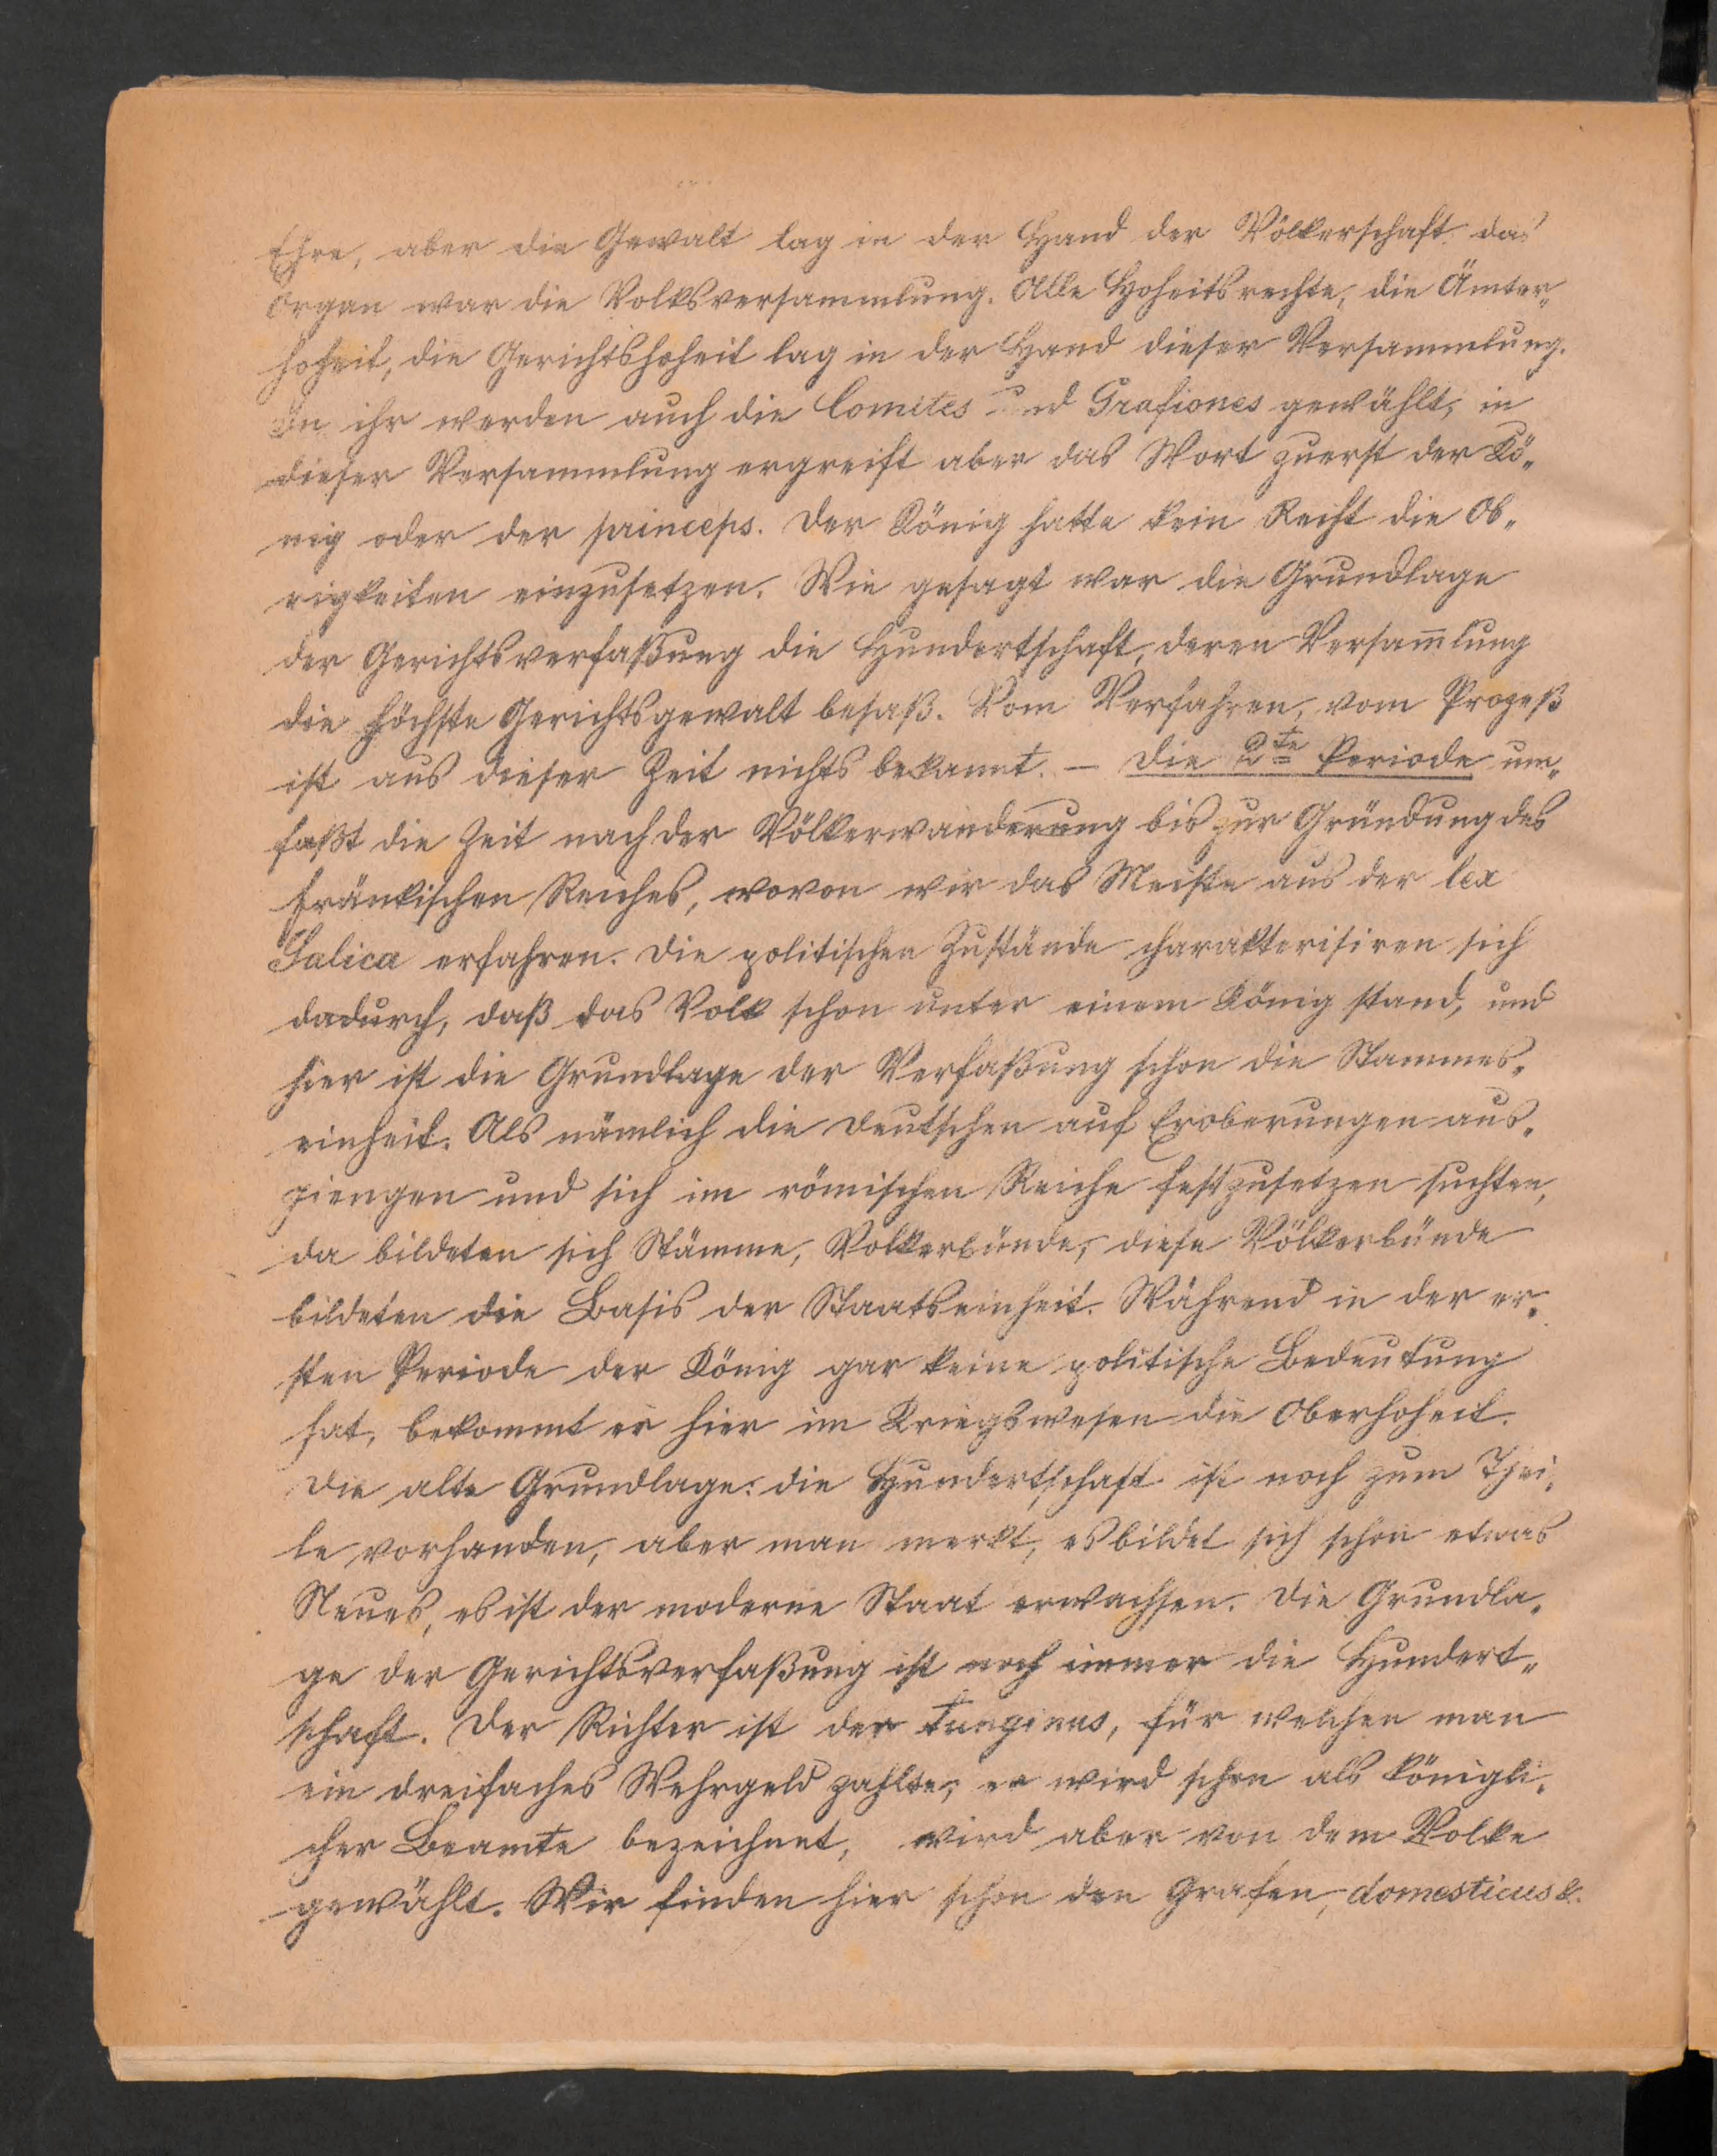 Ehre, aber die Gewalt lag in der Hand der Völkerschaft das
Organ war die Volksversammlung. Alle Hoheitsrechte, die Ämter„
hoheit, die Gerichtshoheit lag in der Hand dieser Versammlung.
In ihr werden auch die Comites und Grafiones gewählt, in
dieser Versammlung ergreift aber das Wort zuerst der Kö„
nig oder der princeps. Der König hatte kein Recht die Ob„
rigkeiten einzusetzen. Wie gesagt war die Grundlage
der Gerichtsverfaßung die Hundertschaft, deren Versam̅lung
die höchste Gerichtsgewalt besaß. Vom Verfahren, vom Prozeß
ist aus dieser Zeit nichts bekannt. – Die 2te Periode um„
faßt die Zeit nach der Völkerwanderung bis zur Gründung des
fränkischen Reiches, wovon wir das Meiste aus der lex
Salica erfahren. Die politischen Zustände charakterisiren sich
dadurch, daß das Volk schon unter einem König stand, und
hier ist die Grundlage der Verfaßung schon die Stammes„
einheit. Als nämlich die Deutschen auf Eroberungen aus„
giengen und sich im römischen Reiche festzusetzen suchten,
da bildeten sich Stämme, Volkerbünde, diese Völkerbünde
bildeten die Basis der Staatseinheit. Während in der er„
sten Periode der König gar keine politische Bedeutung
hat, bekommt er hier im Kriegswesen die Oberhoheit.
Die alte Grundlage: die Hundertschaft ist noch zum Thei„
le vorhanden, aber man merkt, es bildet sich schon etwas
Neues, es ist der moderne Staat erwachsen. Die Grundla„
ge der Gerichtsverfaßung ist noch immer die Hundert„
schaft. Der Richter ist der tunginus, für welchen man
ein dreifaches Wehrgeld zahlte; er wird schon als königli„
cher Beamte bezeichnet, wird aber von dem Volke
gewählt. Wir finden hier schon den Grafen, domesticus &.